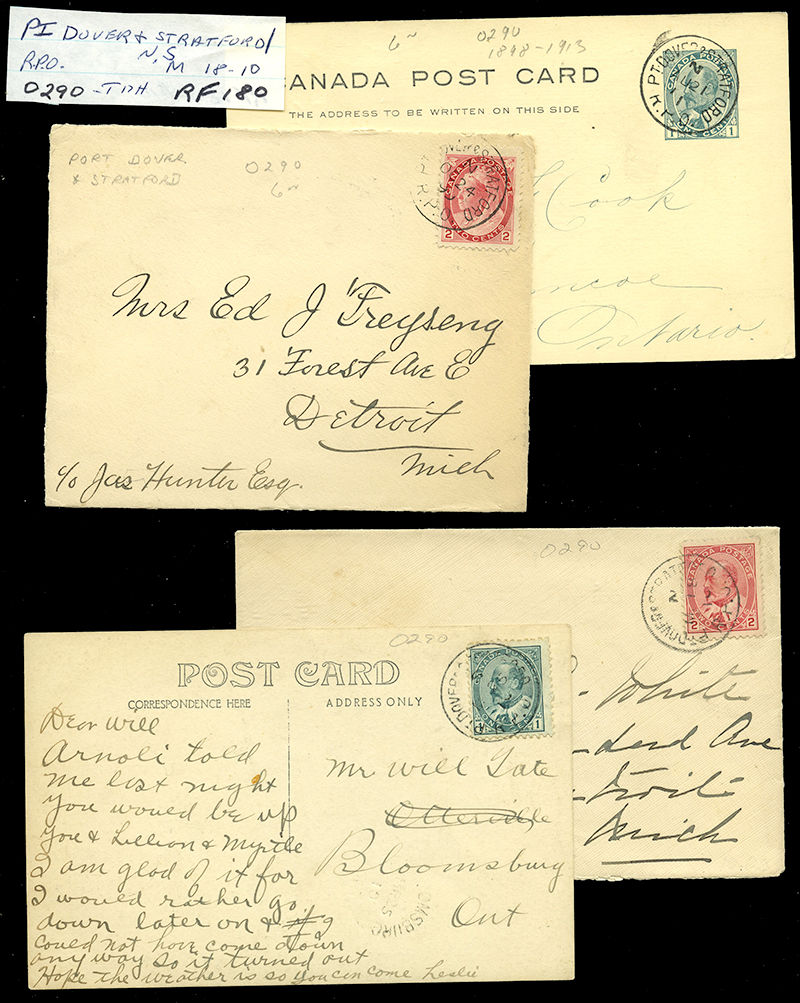 PT DOVER & STRATFORD/
R.P.O. N, S,
M 18-10
O290 - RF 180
6~
O290
1898-1913
CANADA POST CARD
THE ADDRESS TO BE WRITTEN ON THIS SIDE
PT.DOVER & STRATFORD
R.P.O.
1 1
Cook
Ontario.
PORT DOVER
& STRATFORD
O290
6~
STRATFORD
R.P.O.
24
CANADA POSTAGE
2 TWO CENTS 2
Mrs Ed J Freyseng
31 Forest Ave E
Detroit
Mich
c/o Jas Hunter Esq.
O290
PT.DOVER & STRAT
CANADA POSTAGE
2 TWO CENTS 2
White
Ave
Mich
O290
POST CARD
CORRESPONDENCE HERE
ADDRESS ONLY
PT.DOVER
1
Dear Will
Arnoli told
me last night
you would be up
you & Lillion & Myrtle
I am glad of it for
I would rather go
down later on &
could not hove come down
any way so it turned out
Hope the weather is so you can come Leslie
Mr Will Tate
Otterville
Bloomsburg
Ont